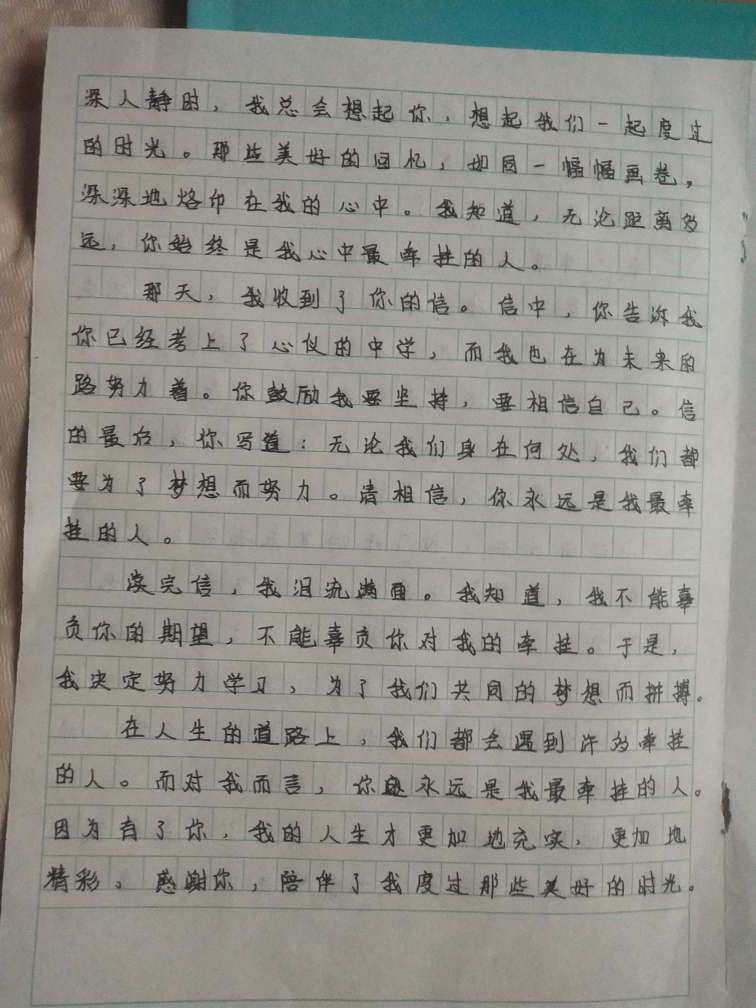 深人静时，我总会想起你，想起我们一起度过
的时光。那些美好的回忆，如同一幅幅画卷，
深深地烙印在我的心中。我知道，无论距离多
远，你始终是我心中最牵挂的人。
那天，我收到了你的信。信中，你告诉我
你已经考上了心仪的中学，而我也在为未来的
路努力着。你鼓励我要坚持，要相信自己。信
的最后，你写道：无论我们身在何处，我们都
要为了梦想而努力。请相信，你永远是我最牵
挂的人。
读完信，我泪流满面。我知道，我不能辜
负你的期望，不能辜负你对我的牵挂。于是，
我决定努力学习，为了我们共同的梦想而拼搏。
在人生的道路上，我们都会遇到许多牵挂
的人。而对我而言，你永远是我最牵挂的人。
因为有了你，我的人生才更加地充实，更加地
精彩。感谢你，陪伴了我度过那些美好的时光。